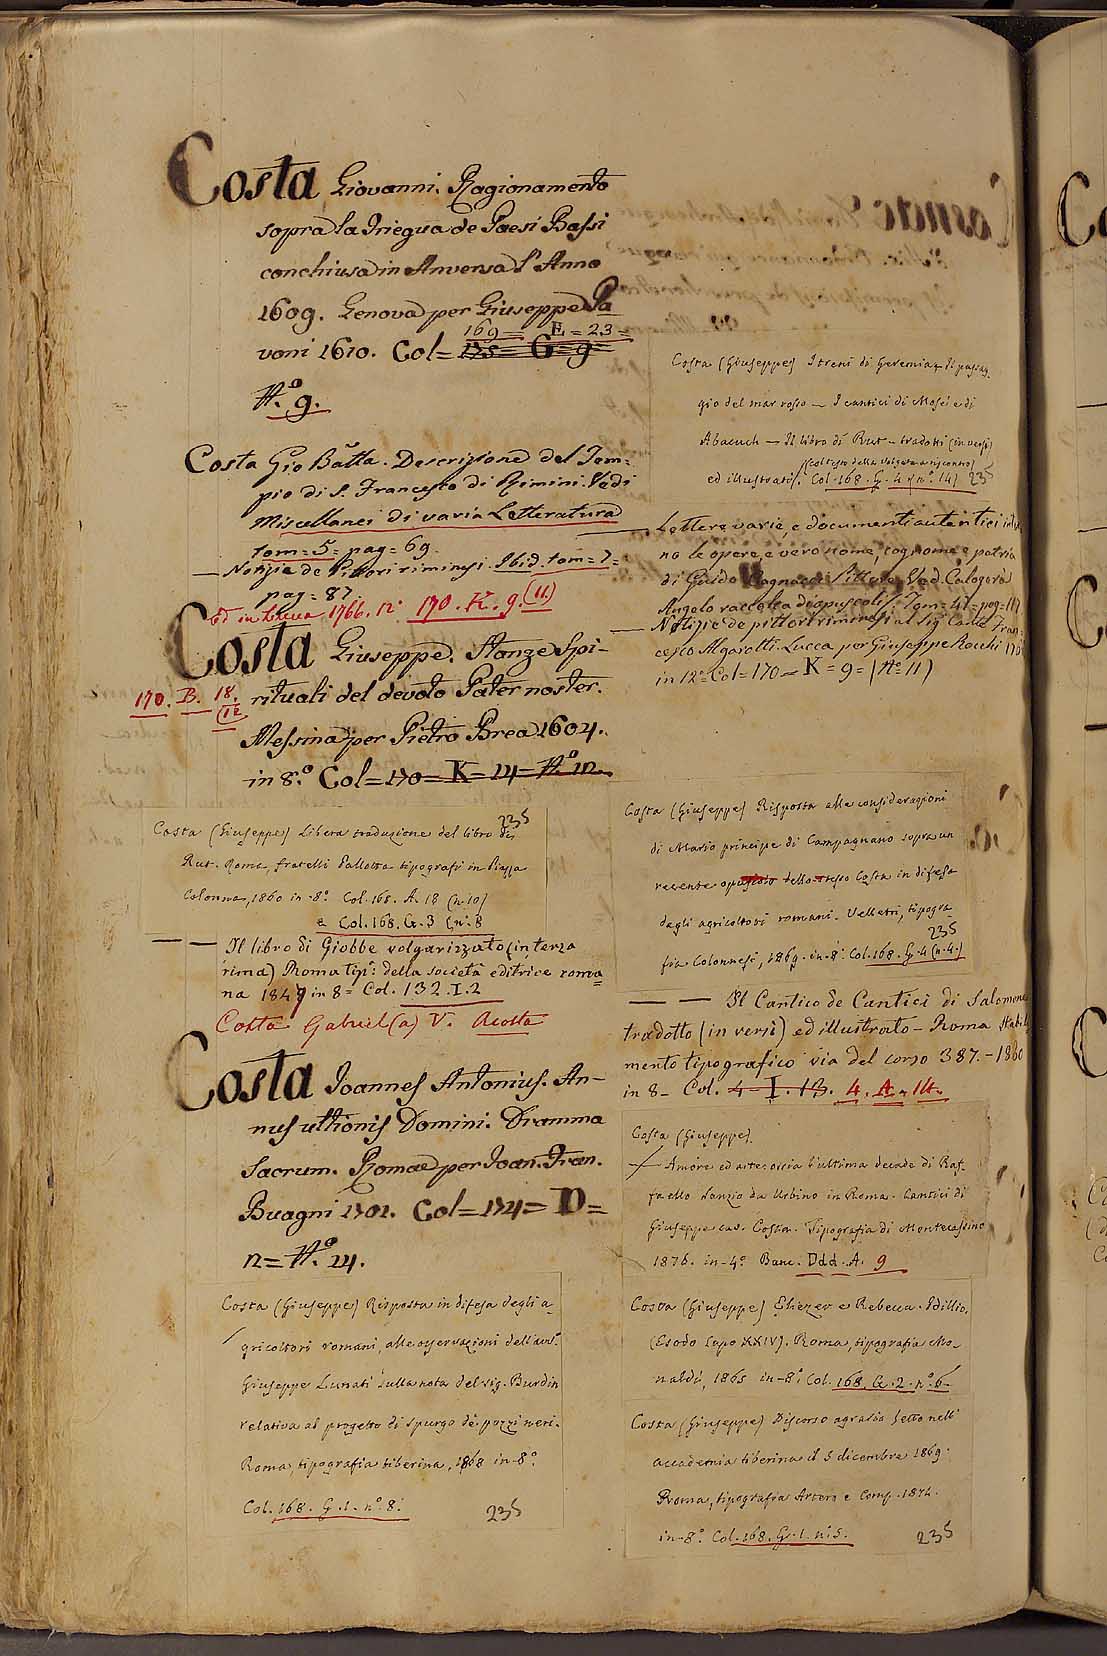 Costa Giovanni. Ragionamento
sopra la Triegua de Paesi Bassi
conchiusa in Anversa l'Anno
1609. Genova per Giuseppe Pa
voni 1610. Col= 175= G= 9=
169= E= 23=
N.º 9.
Costa Gio Batta. Descrizione del Tem=
pio di S. Francesco di Rimini. Vedi
Miscellanei di varia Letteratura
tom=5= pag= 69.
— Notizie de Pittori riminesi. Ibid. tom=7=
pag= 87.
Ed in Lucca 1766. 12º 170. K. 9. (11)
Costa Giuseppe. Stanze Spi-
rituali del devoto Pater noster.
170. B. 18.
(12
Messina per Pietro Brea 1604.
in 8.º Col=170= K= 14= N.º 12.
Costa (Giuseppe) Libera traduzione del libro di
235
Rut. Roma, fratelli Pallotta tipografi in Piazza
Colonna, 1860 in-8º Col. 168. A. 18 (n. 10)
e Col. 168. G. 3 (n. 8
— — Il libro di Giobbe volgarizzato (in terza
rima) Roma Tip: della società editrice roma
na 1849 in 8= Col. 132. I. 2
Costa Gabriel(a) V. Acosta
Costa Joannes Antonius. An-
nus ultionis Domini. Dramma
Sacrum. Romae per Joan. Fran.
Buagni 1701. Col=174= D=
12= N.º 24.
Costa (Giuseppe) Risposta in difesa degli a_
gricoltori romani, alle osservazioni dell'avv.
Giuseppe Lunati sulla nota del sig. Burdin
relativa al progetto di spurgo de' pozzi neri.
Roma, tipografia tiberina, 1868 in-8º.
Col. 168. G. 1. nº 8.
235
Costa (Giuseppe) I treni di Geremia, Il passag_
gio del mar rosso — I cantici di Mosè e di
Abacuch — Il libro di Rut — tradotti (in versi)
(col testo della Volgata a riscontro)
ed illustrati. Col. 168. G. 4 (nº. 14) 235
— Lettere varie, e documenti autentici intor
no le opere, e vero nome, cognome, e patria
di Guido Cagnacci Pittore. Ved. Calogerà
Angelo raccolta d'opuscoli. Tom=47= pag=117
— Notizie de pittori riminesi al Sig. Conte Fran=
cesco Algarotti. Lucca per Giuseppe Rocchi
in 12º Col=170= K= 9= (Nº 11)
Costa (Giuseppe) Risposta alle considerazioni
di Mario principe di Campagnano sopra un
recente opuscolo dello stesso Costa in difesa
degli agricoltori romani. Velletri, tipogra-
235
fia Colonnesi, 1869. in-8º. Col. 168. G. 4 (n. 4.)
— — Il Cantico de Cantici di Salomone
tradotto (in versi) ed illustrato — Roma stabili
mento tipografico via del corso 387. — 1860
in 8_ Col. 4 I. 13. 4. A. 14.
Costa (Giuseppe)
Amore ed arte ossia l'ultima decade di Raf_
faello Sanzio da Urbino in Roma. Cantici di
Giuseppe cav. Costa. Tipografia di Montecassino
1876. in-4º Banc. Ddd. A. 9
Costa (Giuseppe) Eliezer e Rebecca. Idillio.
(Esodo Capo XXIV). Roma, tipografia Mo_
naldi, 1865 in-8º. Col. 168. G. 2. nº 6
Costa (Giuseppe) Discorso agrario letto nell'
accademia tiberina il 5 dicembre 1869.
Roma, tipografia Artero e Comp. 1874.
in-8º. Col. 168. G. 1. nº. 5.
235